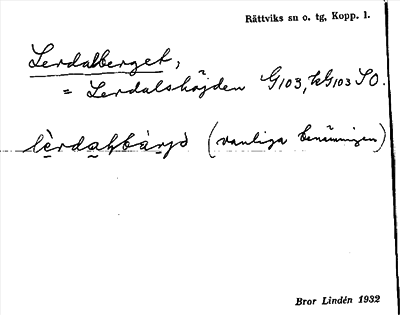 Rättviks sn o. tg, Kopp. l.
Lerdalberget,
= Lerdalshöjden G103, kG103 SO.
lèrdaḷbàrjə̀ (vanliga benämningen)
Bror Lindén 1932